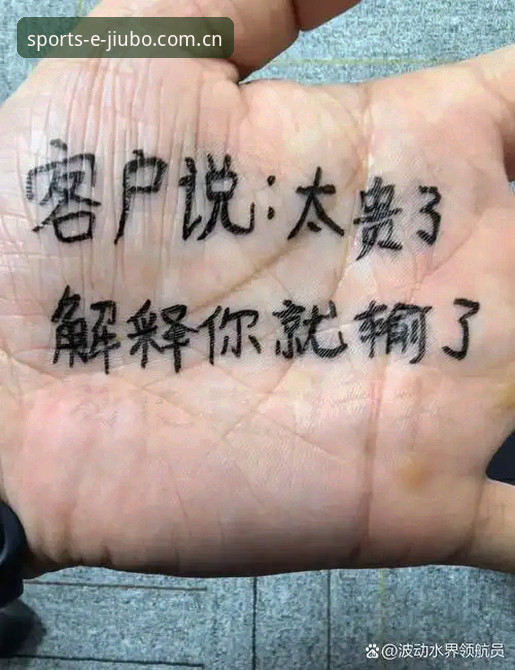 sports-e-jiubo.com.cn
客户说:太贵了
解释你就输了
@波动水界领航员